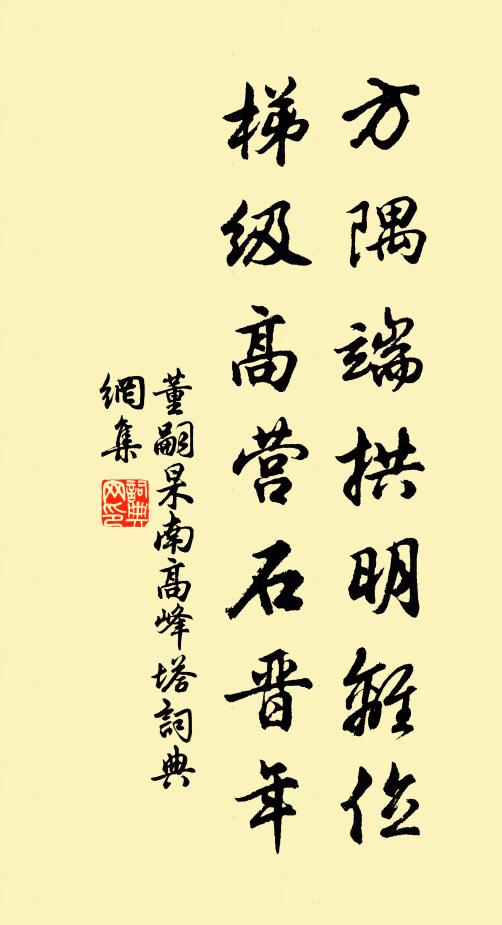 方隅端拱明離位
梯级高营石晋年
董嗣杲南高峰塔詞典
網集
詞典网印